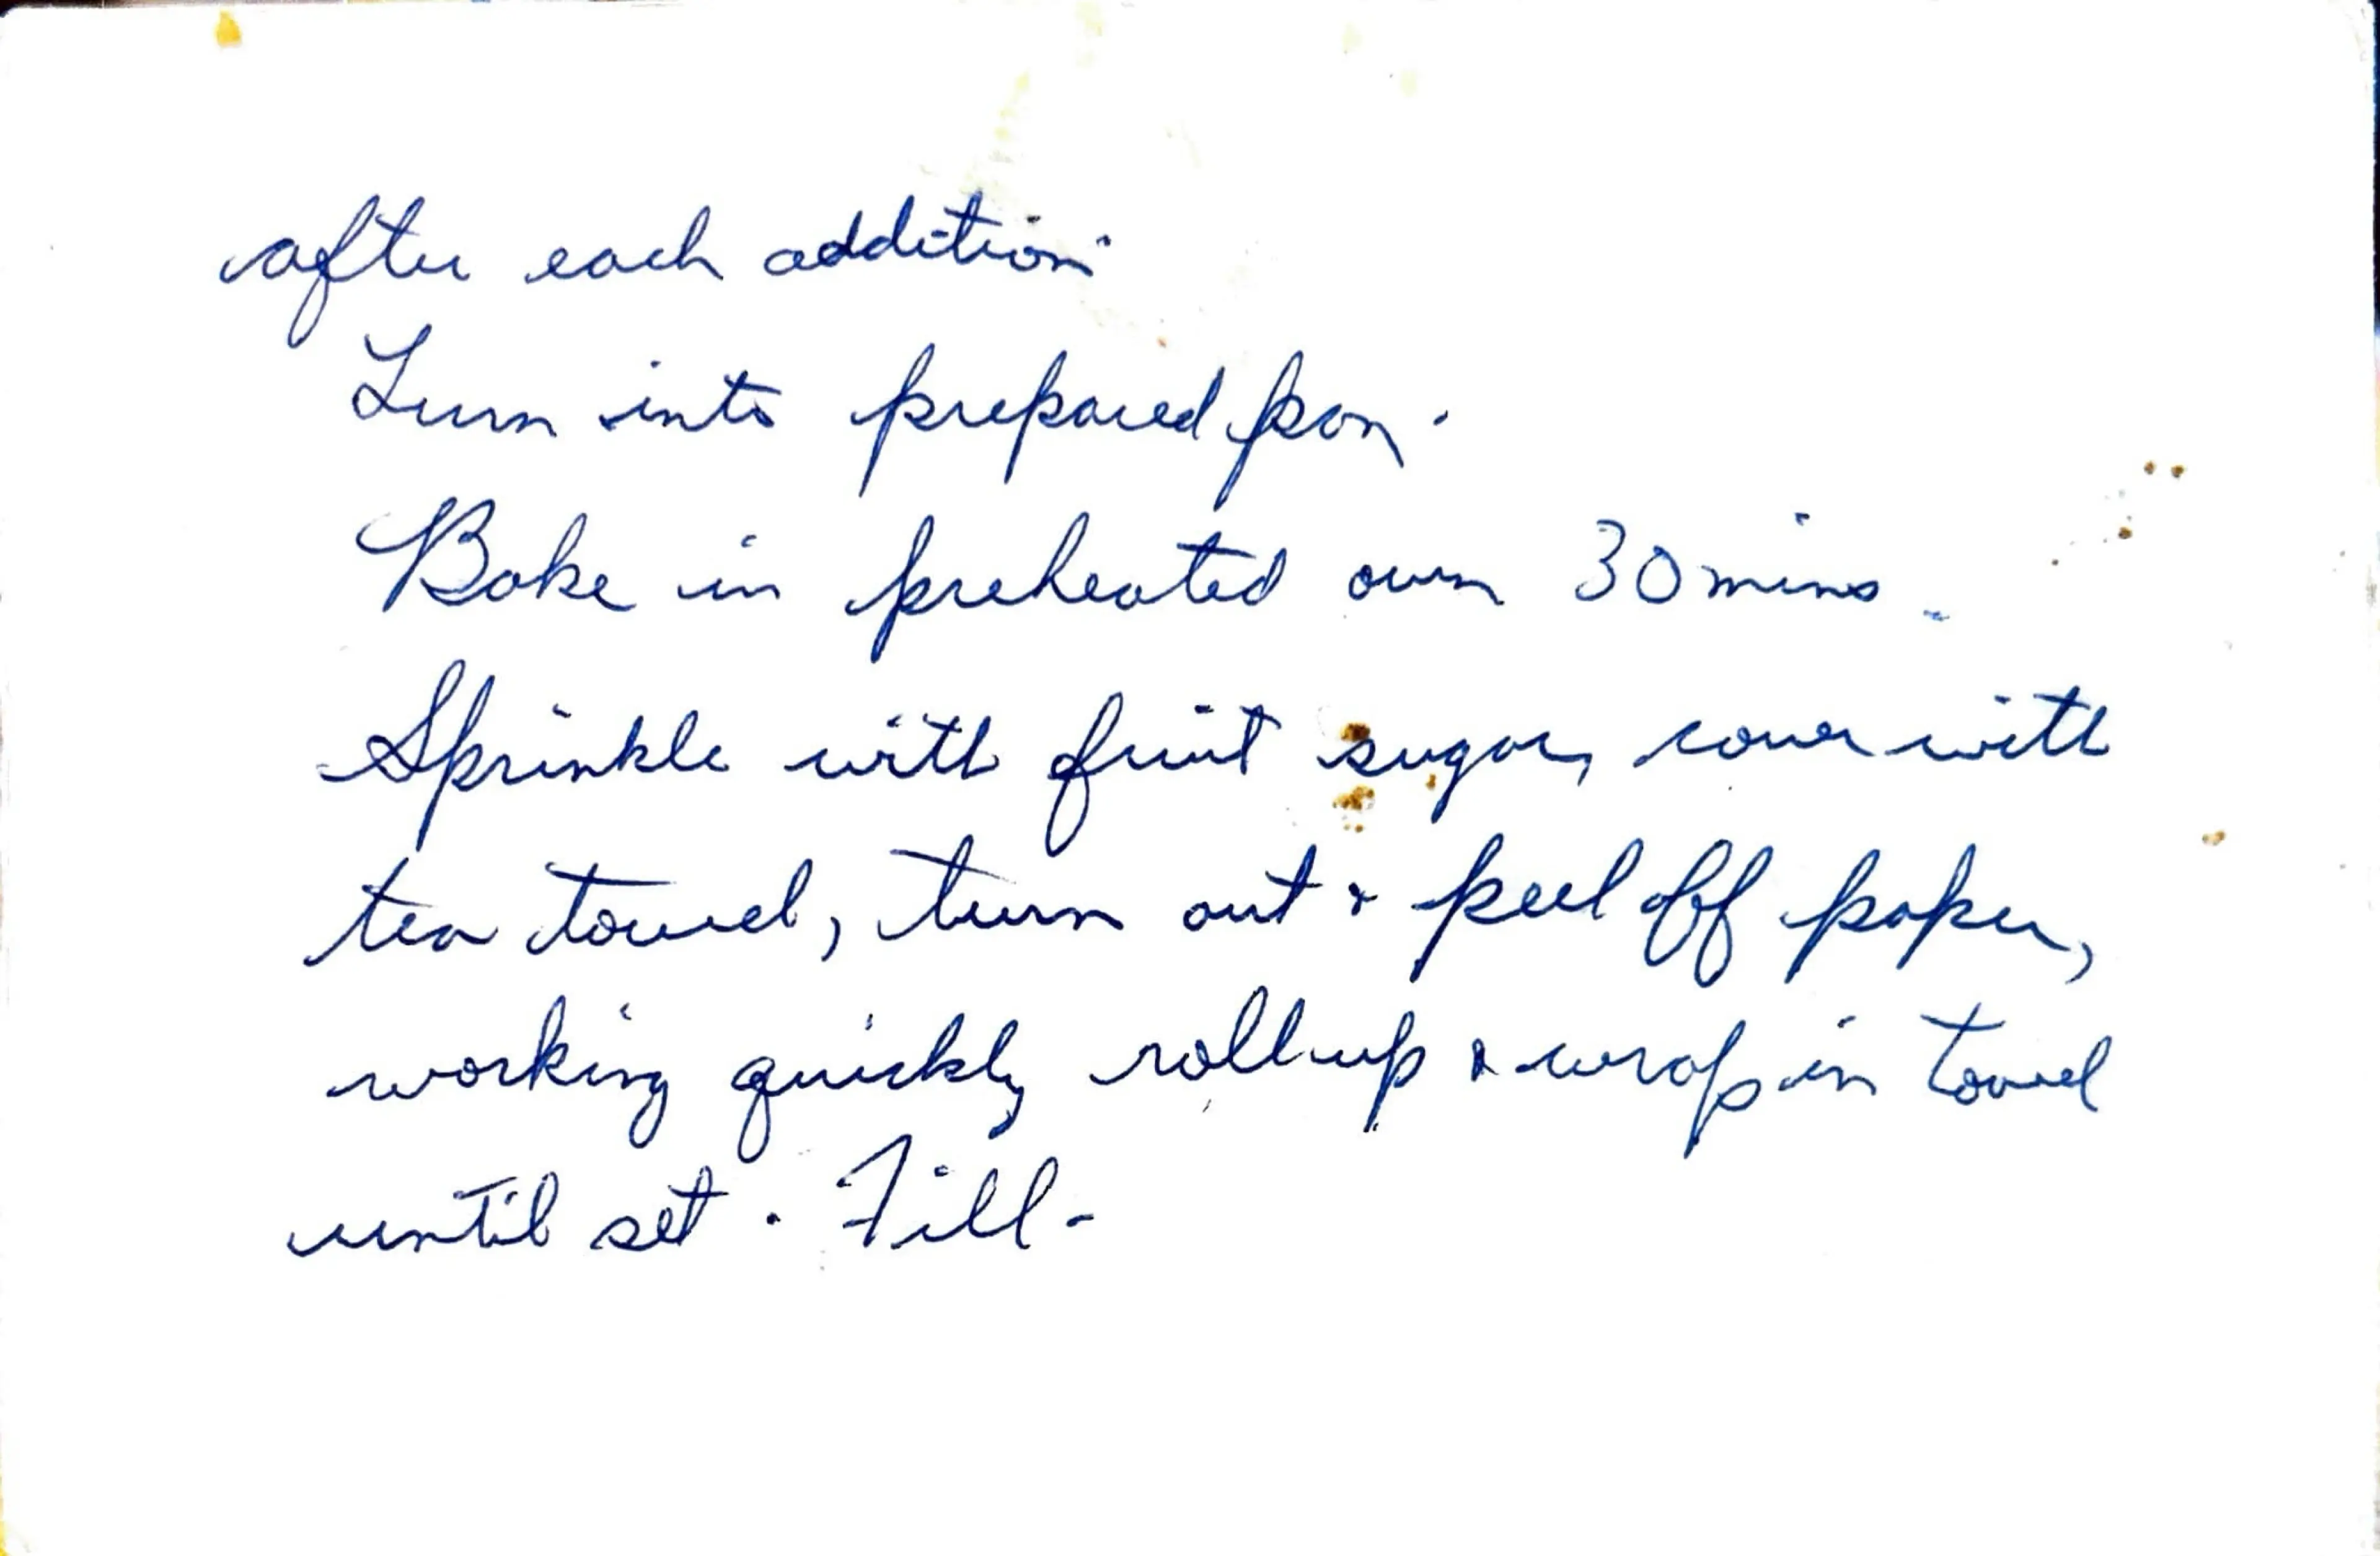 after each addition.
Turn into prepared pan.
Bake in preheated oven 30 mins.
Sprinkle with fruit sugar, cover with
tea towel, turn out & peel off paper,
working quickly roll up & wrap in towel
until set. Fill-